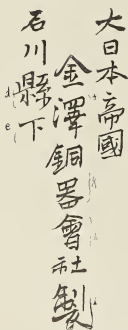 大日本帝國
石川縣下
金澤銅器會社製